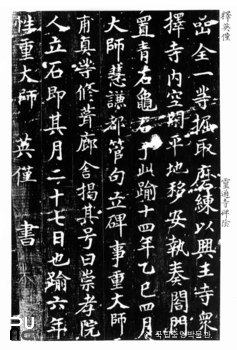 釋英僅
靈通寺碑
全一等抵取磨練以興王寺衆
擇寺内空閑平地移安執奏閤門
置青石龜石于此踰十四年乙巳四月
大師慧謙都管句立碑事重大師
甫真等修葺廊舍揭其号曰崇孝院
人立石即其月二十七日也踰六年
性重大師 英僅 書
국립중앙박물관